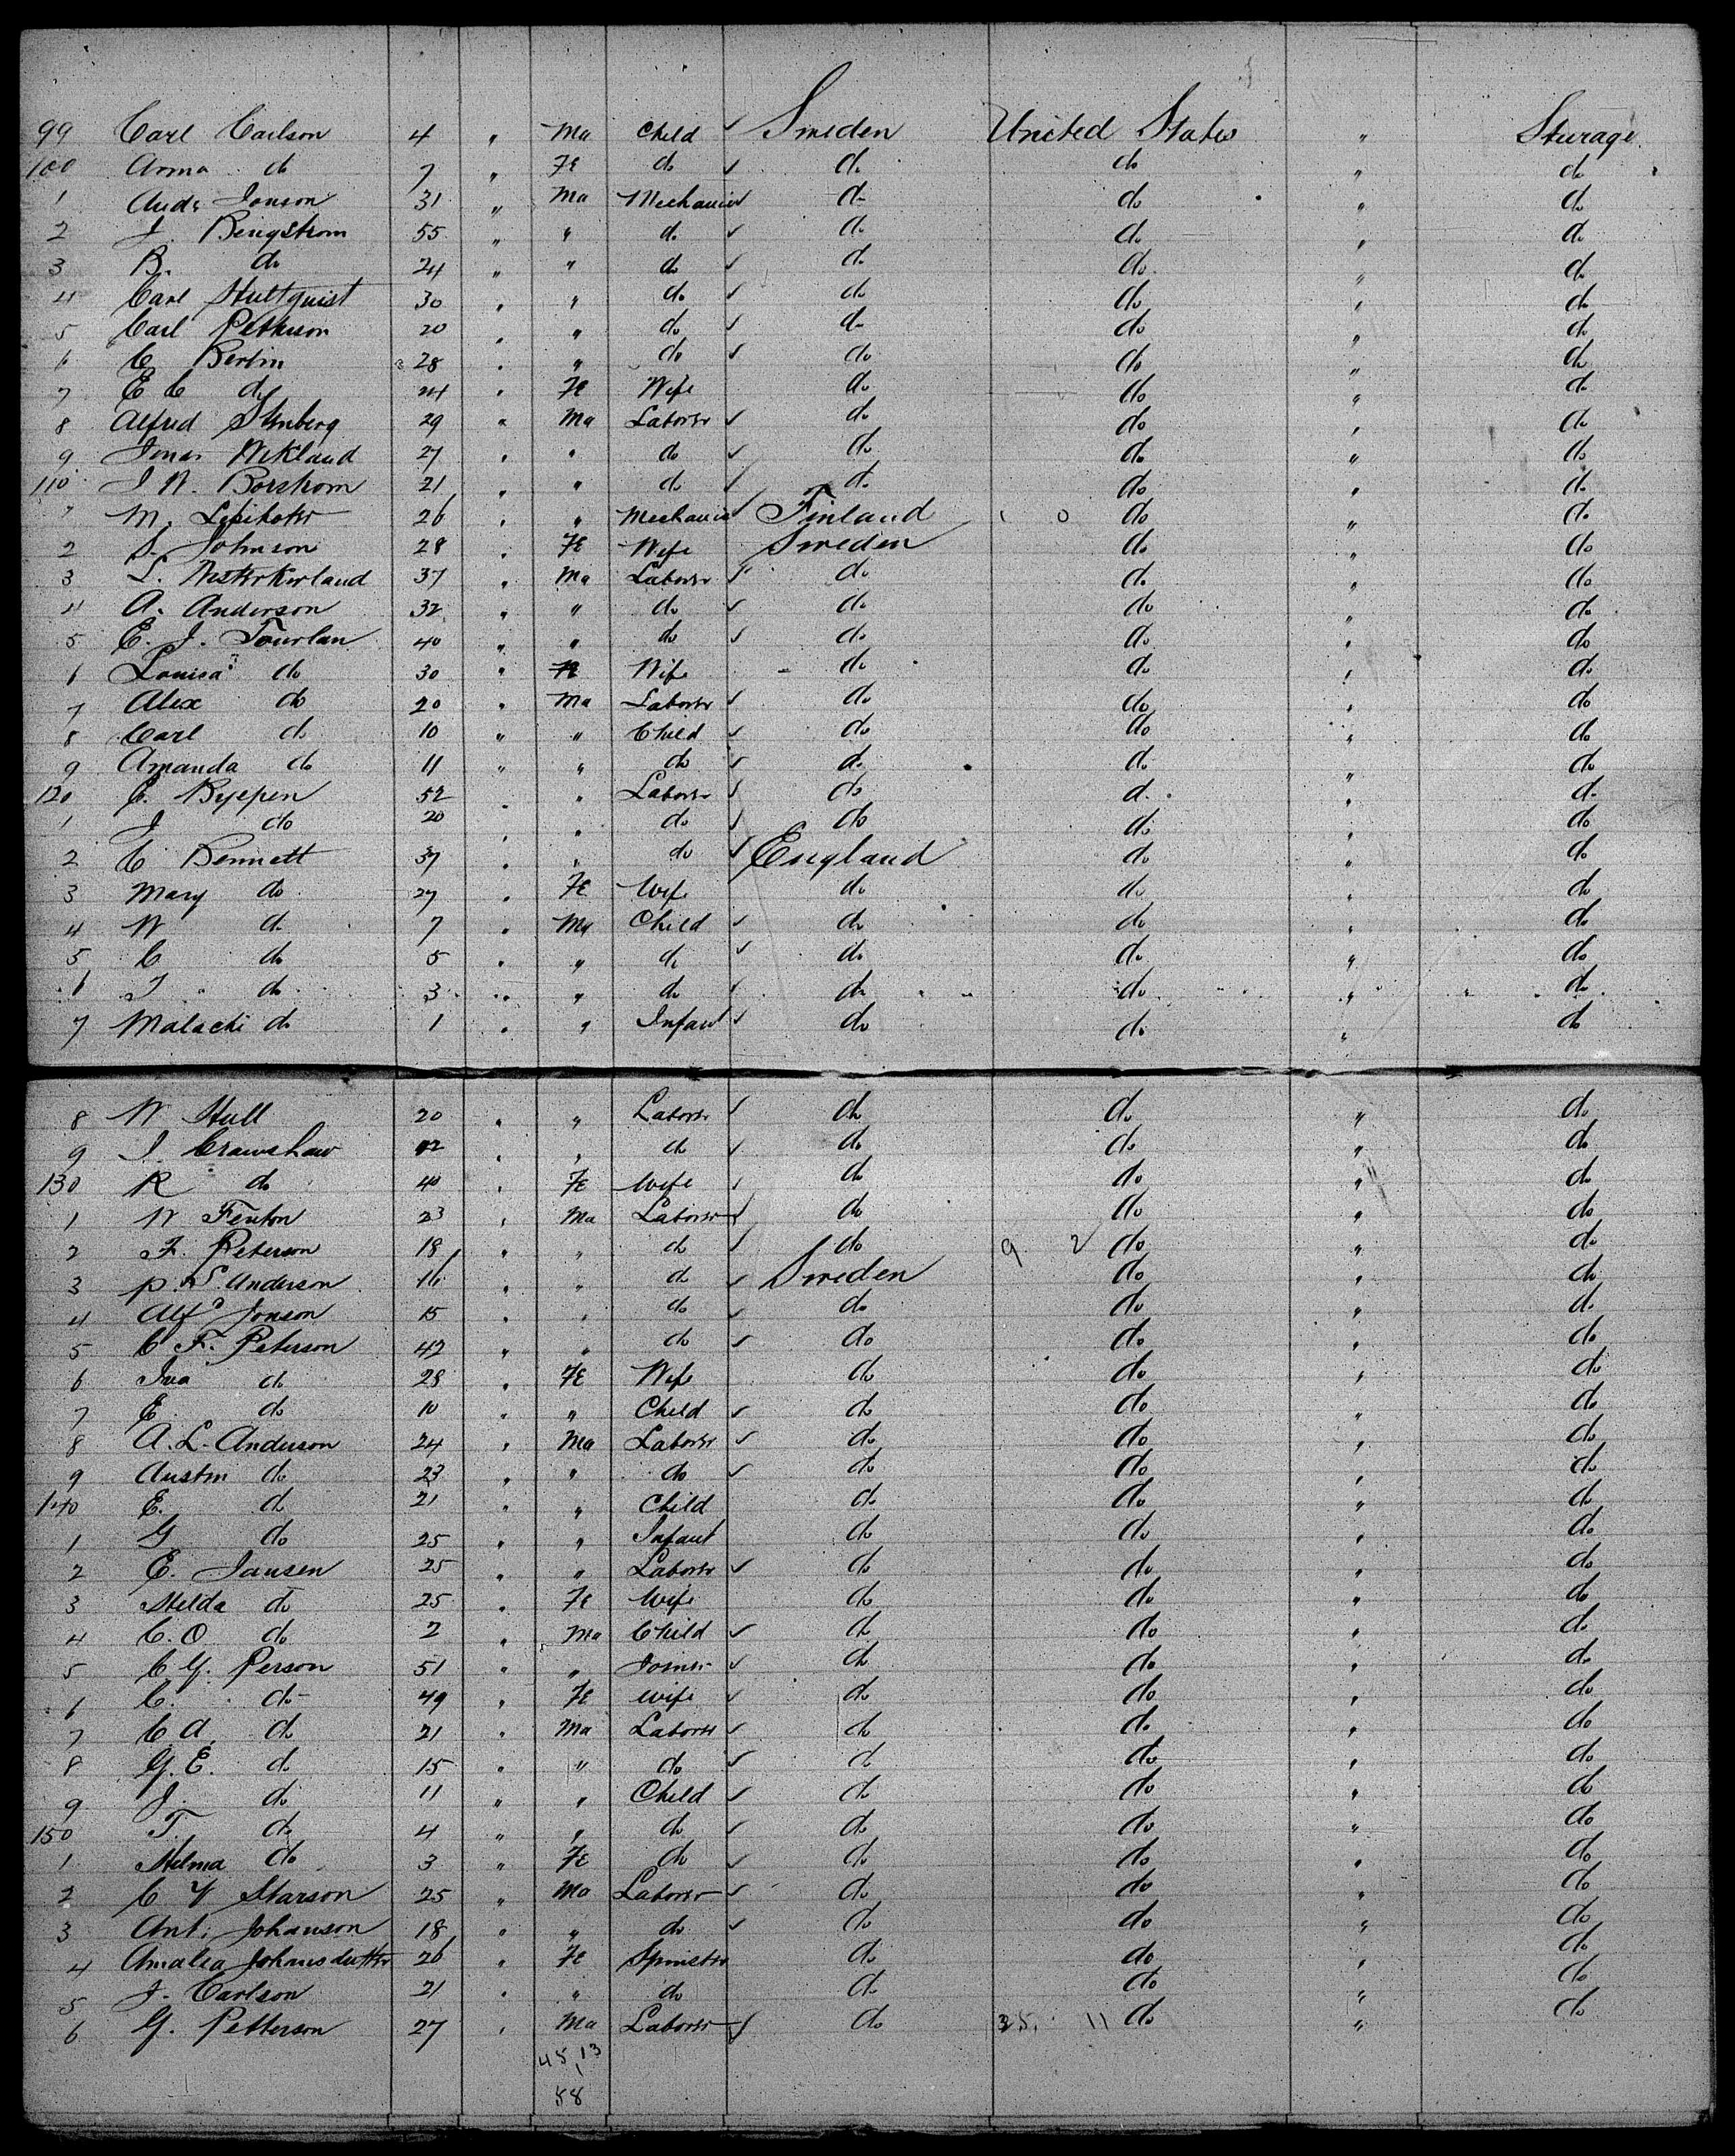 99 Carl Carlson 4 " Ma Child ✓ Sweden United States " Sturage
100 Anna do 7 " Fe do ✓ do do " do
1 Ands Jonson 31 " Ma Mechanic ✓ do do " do
2 J. Bengstrom 55 " " do ✓ do do " do
3 B. do 24 " " do ✓ do do " do
4 Carl Hultquist 30 " " do ✓ do do " do
5 Carl Petterson 20 " " do ✓ do do " do
6 C Bertin 28 " " do ✓ do do " do
7 E C do 24 " Fe Wife do do " do
8 Alfred Stenberg 29 " Ma Laborer ✓ do do " do
9 Jonas Wikland 27 " " do ✓ do do " do
110 J W. Borstrom 21 " " do ✓ do do " do
" M. 26 " " Mechanic ✓ Finland 1 0 do " do
2 S. Johnson 28 " Fe Wife Sweden do " do
3 L. 37 " Ma Laborer ✓ do do " do
4 A. Anderson 32 " " do ✓ do do " do
5 E. J. Tourlan 40 " " do ✓ do do " do
6 Louisa do 30 " Fe Wife do do " do
7 Alex do 20 " Ma Laborer ✓ do do " do
8 Carl do 10 " " Child ✓ do do " do
9 Amanda do 11 " " do ✓ do do " do
120 C. Byepen 52 " " Laborer ✓ do do " do
1 J do 20 " " do ✓ do do " do
2 C Bennett 37 " " do ✓ England do " do
3 Mary do 27 " Fe Wife do do " do
4 W do 7 " Ma Child ✓ do do " do
5 C do 5 " " do ✓ do do " do
6 J do 3 " " do ✓ do do " do
7 Malachi do 1 " " Infant ✓ do do " do
8 W. Hull 20 " " Laborer ✓ do do " do
9 J. Crawshaw 42 " " do ✓ do do " do
130 R do 40 " Fe Wife ✓ do do " do
1 W Fenton 23 " Ma Laborer ✓ do do " do
2 F. Peterson 18 " " do ✓ do 9 2 do " do
3 P. S. Anderson 16 " " do ✓ Sweden do " do
4 Alfd Jonson 15 " " do ✓ do do " do
5 C F. Peterson 42 " " do ✓ do do " do
6 Iva do 28 " Fe Wife do do " do
7 E do 10 " " Child ✓ do do " do
8 A. L. Anderson 24 " Ma Laborer ✓ do do " do
9 Austin do 23 " " do ✓ do do " do
140 E. do 21 " " Child do do " do
1 G do 25 " " Infant do do " do
2 E. Jansen 25 " " Laborer ✓ do do " do
3 Helda do 25 " Fe Wife do do " do
4 C. O do 2 " Ma Child ✓ do do " do
5 C G. Person 51 " " Joiner ✓ do do " do
6 C. do 49 " Fe Wife ✓ do do " do
7 C. A. do 21 " Ma Laborer ✓ do do " do
8 G. E. do 15 " " do ✓ do do " do
9 J. do 11 " " Child ✓ do do " do
150 T. do 4 " " do ✓ do do " do
1 Helma do 3 " Fe do ✓ do do " do
2 C V Starson 25 " Ma Laborer ✓ do do " do
3 Ant. Johanson 18 " " do ✓ do do " do
4 Amalia Johansdutter 26 " Fe Spinster do do " do
5 J. Carlson 21 " " do do do " do
6 G. Petterson 27 " Ma Laborer ✓ do 35. 11 do "
45 13
1
58